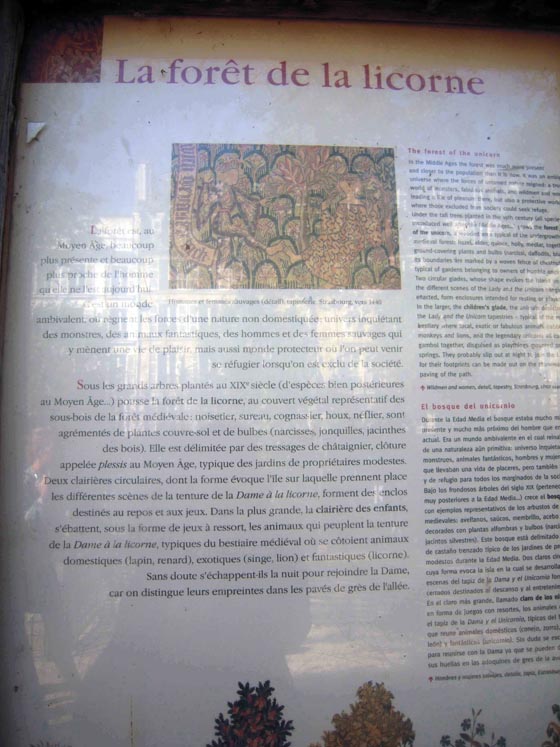 La forêt de la licorne
La forêt est, au
Moyen Âge, beaucoup
plus présente et beaucoup
plus proche de l'homme
qu'elle ne l'est aujourd'hui.
C'est un monde
ambivalent, où règnent les forces d'une nature non domestiquée: univers inquiétant
des monstres, des animaux fantastiques, des hommes et des femmes sauvages qui
y mènent une vie de plaisir, mais aussi monde protecteur où l'on peut venir
se réfugier lorsqu'on est exclu de la société.
Hommes et femmes sauvages (détail), tapisserie, Strasbourg, vers 1440
Sous les grands arbres plantés au XIXe siècle (d'espèces bien postérieures
au Moyen Âge...) pousse la forêt de la licorne, au couvert végétal représentatif des
sous-bois de la forêt médiévale: noisetier, sureau, cognassier, houx, néflier, sont
agrémentés de plantes couvre-sol et de bulbes (narcisses, jonquilles, jacinthes
des bois). Elle est délimitée par des tressages de châtaignier, clôture
appelée plessis au Moyen Âge, typique des jardins de propriétaires modestes.
Deux clairières circulaires, dont la forme évoque l'île sur laquelle prennent place
les différentes scènes de la tenture de la Dame à la licorne, forment des enclos
destinés au repos et aux jeux. Dans la plus grande, la clairière des enfants,
s'ébattent, sous la forme de jeux à ressort, les animaux qui peuplent la tenture
de la Dame à la licorne, typiques du bestiaire médiéval où se côtoient animaux
domestiques (lapin, renard), exotiques (singe, lion) et fantastiques (licorne).
Sans doute s'échappent-ils la nuit pour rejoindre la Dame,
car on distingue leurs empreintes dans les pavés de grès de l'allée.
The forest of the unicorn
In the Middle Ages the forest was much more present
and closer to the population than it is now. It was an
universe where the forces of untamed nature reigned: a
world of monsters, fabulous animals,
leading a life of pleasure them, but also a protective
where those excluded from society could seek refuge.
Under the tall trees planted in the 19th century
the forest
of the unicorn,
medieval forest: hazel, elder, quince, holly, medlar,
ground-covering plants and bulbs (narcissi, daffodils,
its boundaries are marked by a woven fence of chestnut
typical of gardens belonging to owners of humble
Two circular glades, whose shape evokes the island
the different scenes of the Lady and the Unicorn
form enclosures intended for resting
In the larger, the children's glade,
the Lady and the Unicorn tapestries
bestiary where local, exotic or fabulous animals
monkeys and lions, and the legendary unicorn
gambol together, disguised as playthings
springs. They probably slip out at night to join the
for their footprints can be made out on the
paving of the path.
Wildmen and women, detail, tapestry, Strasbourg,
El bosque del unicornio
Durante la Edad Media el bosque estaba mucho
presente y mucho más próximo del hombre que en
actual. Era un mundo ambivalente en el cual
de una naturaleza aún primitiva: universo
monstruos, animales fantásticos, hombres y
que llevaban una vida de placeres, pero también
y de refugio para todos los marginados de la
Bajo los frondosos árboles del siglo XIX
muy posteriores a la Edad Media...) crece el
con ejemplares representativos de los arbustos de
medievales: avellanos, saúcos, membrillo,
decorados con plantas alfombra y bulbos
jacintos silvestres). Este bosque está delimitado
de castaño trenzado típico de los jardines de
modestos durante la Edad Media. Dos claros
cuya forma evoca la isla en la cual se
escenas del tapiz de la Dama y el Unicornio
cercados destinados al descanso y al
En el claro más grande, llamado claro de los
en forma de juegos con resortes, los
el tapiz de la Dama y el Unicornio,
que reúne animales domésticos (conejo, zorro),
león) y fantásticos (unicornio). Sin duda se
para reunirse con la Dama ya que se pueden
sus huellas en los adoquines de gres de la
Hombres y mujeres salvajes, detalle, tapiz, Estrasburgo